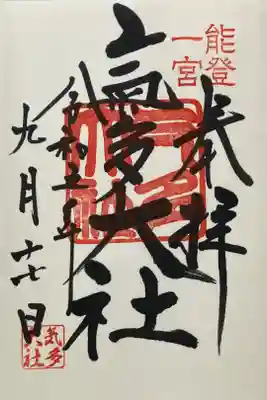 能登
一宮
奉拝
氣多大社
令和五年
九月十七日
気多
大社